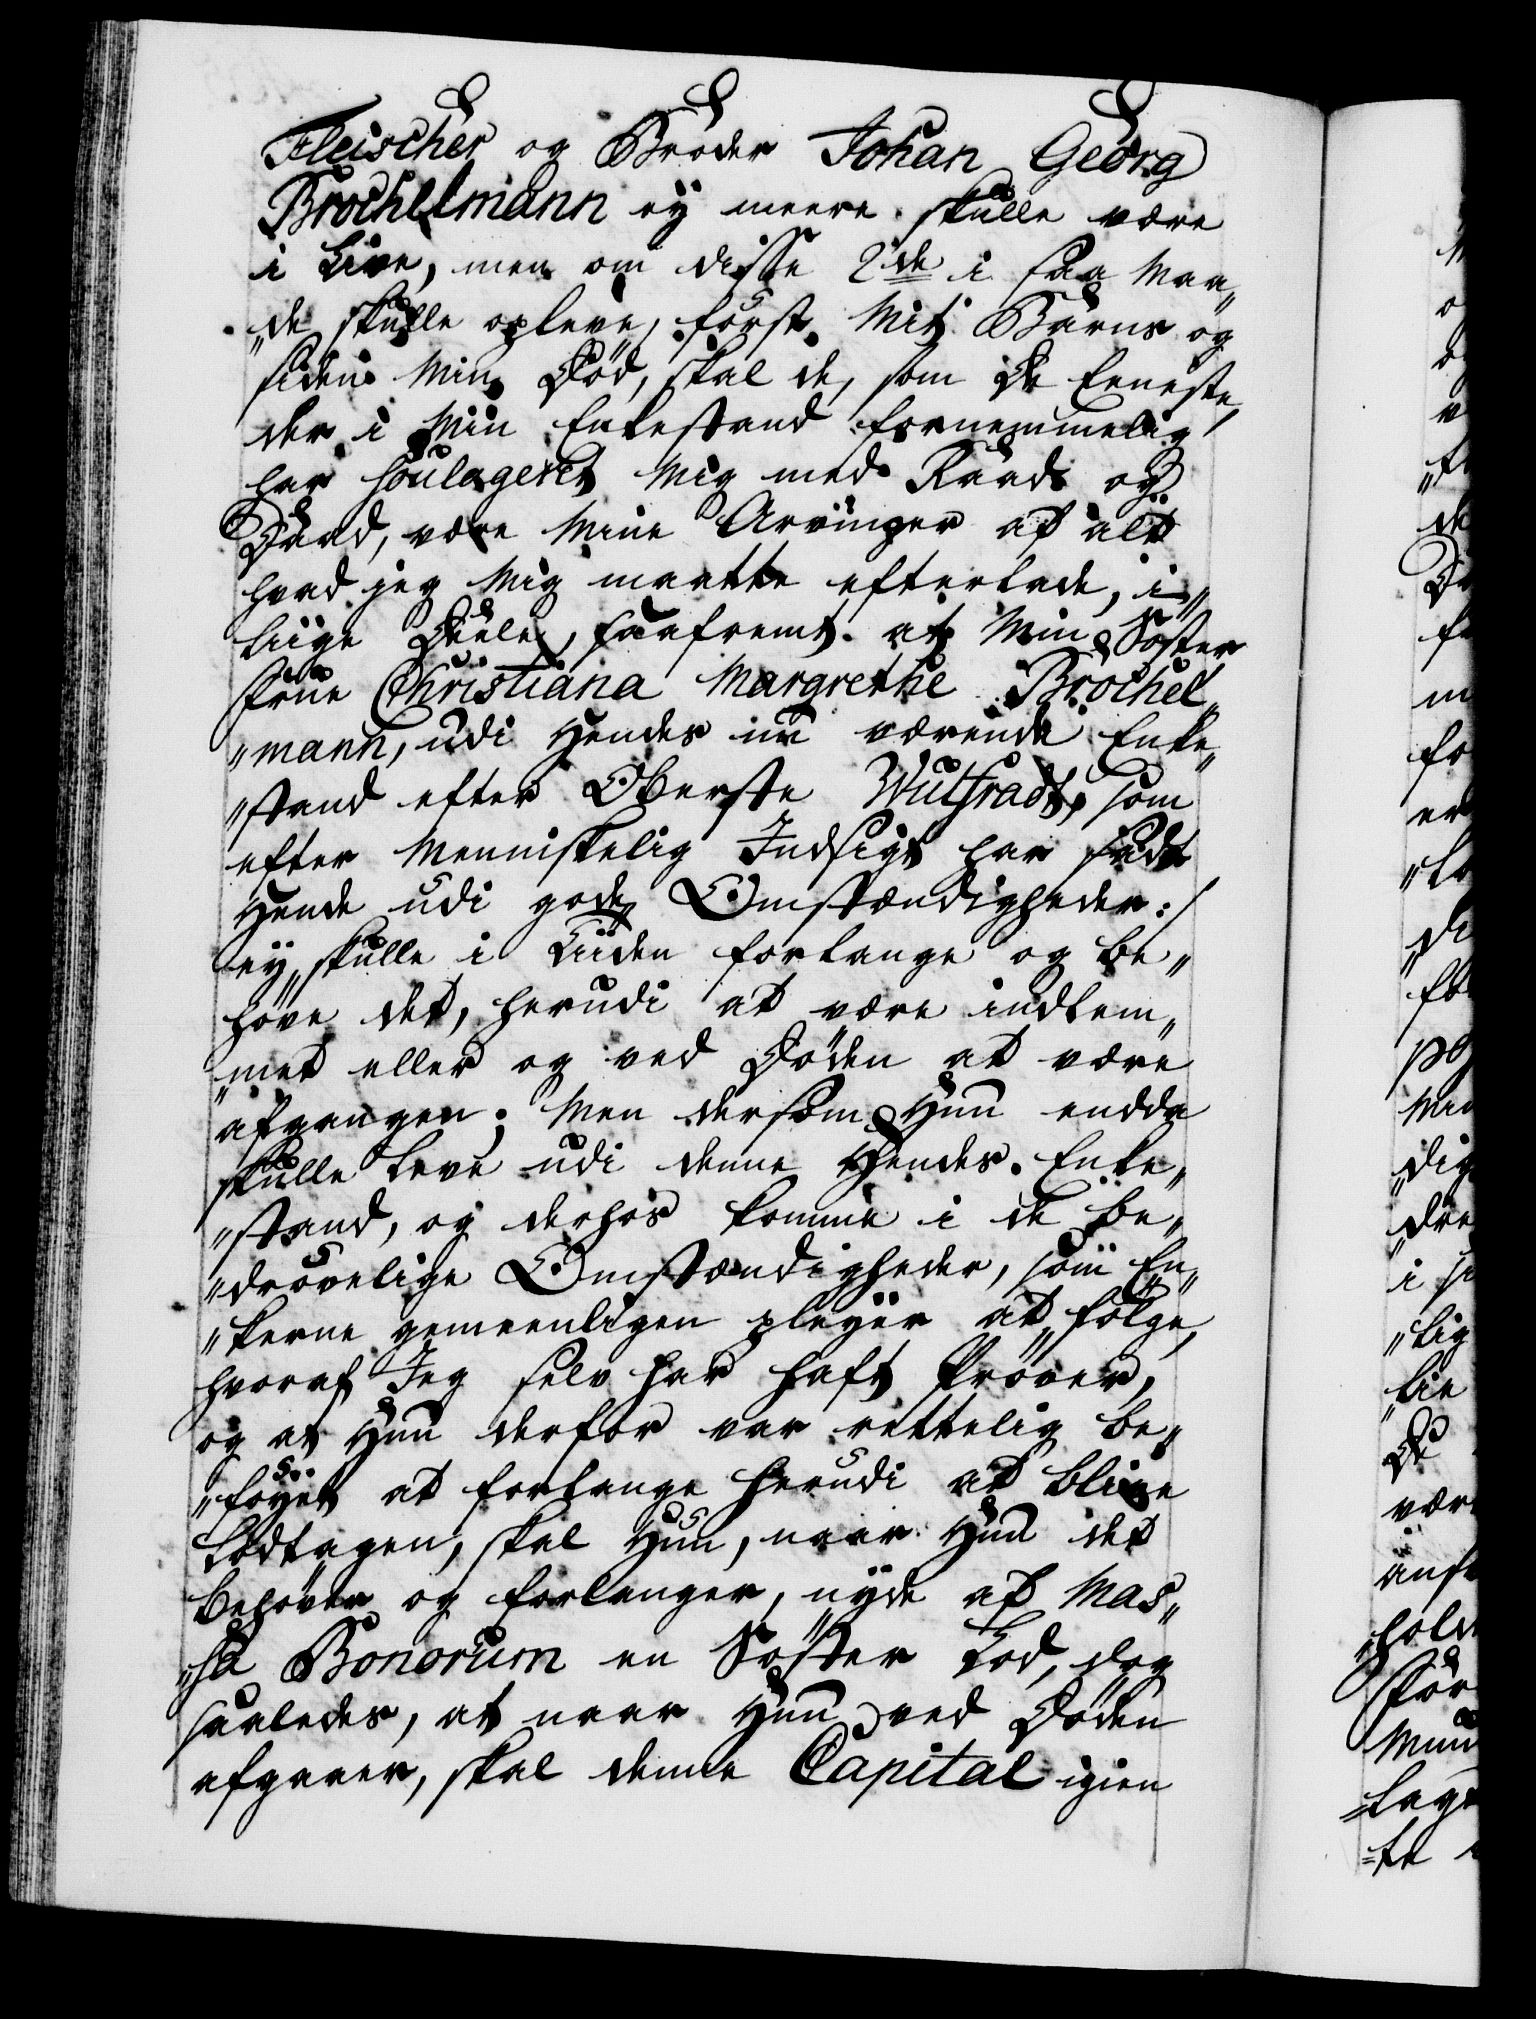 Fleischer og Broder Johan Georg
Brochelmann ey meere skulle være
i Live, men om disse 2de i saa Maa„
„de skulle opleve, først Mit Barns og
siden Min Død, skal de, som De Eeneste,
der i Min Enkestand fornemmelig
har soulageret Mig med Raad og
Daad, være Mine Arvinger af alt
hvad jeg Mig maatte efterlade, i„
liige Deele, saafremt at Min Søster
Frue Christiana Margrethe Brochel„
„mann, udi Hendes nu værende Enke„
„stand efter Oberste Wulfradt, som
efter Menniskelig Indsigt har sadt
Hende udi gode Omstændigheder :/
ey skulle i Tiiden forlange og be„
høve det, herudi at være indlem„
„met eller og ved Døden at være
afgangen; Men dersom Hun endda
skulle leve udi denne Hendes Enke„
„stand, og derhos komme i de be„
„drøvelige Omstændigheder, som En„
„kerne gemeenligen pleyer at følge,
hvoraf Jeg selv har haft Prøver,
og at Hun derfor var rettelig be„
„føyet at forlange herudi at blive
lodtagen, skal Hun, naar Hun det
behøver og forlanger, nyde af Mas„
„sa Bonorum en Søster Lod, dog
saaledes, at naar Hun ved Døden
afgaaer, skal denne Capital igien